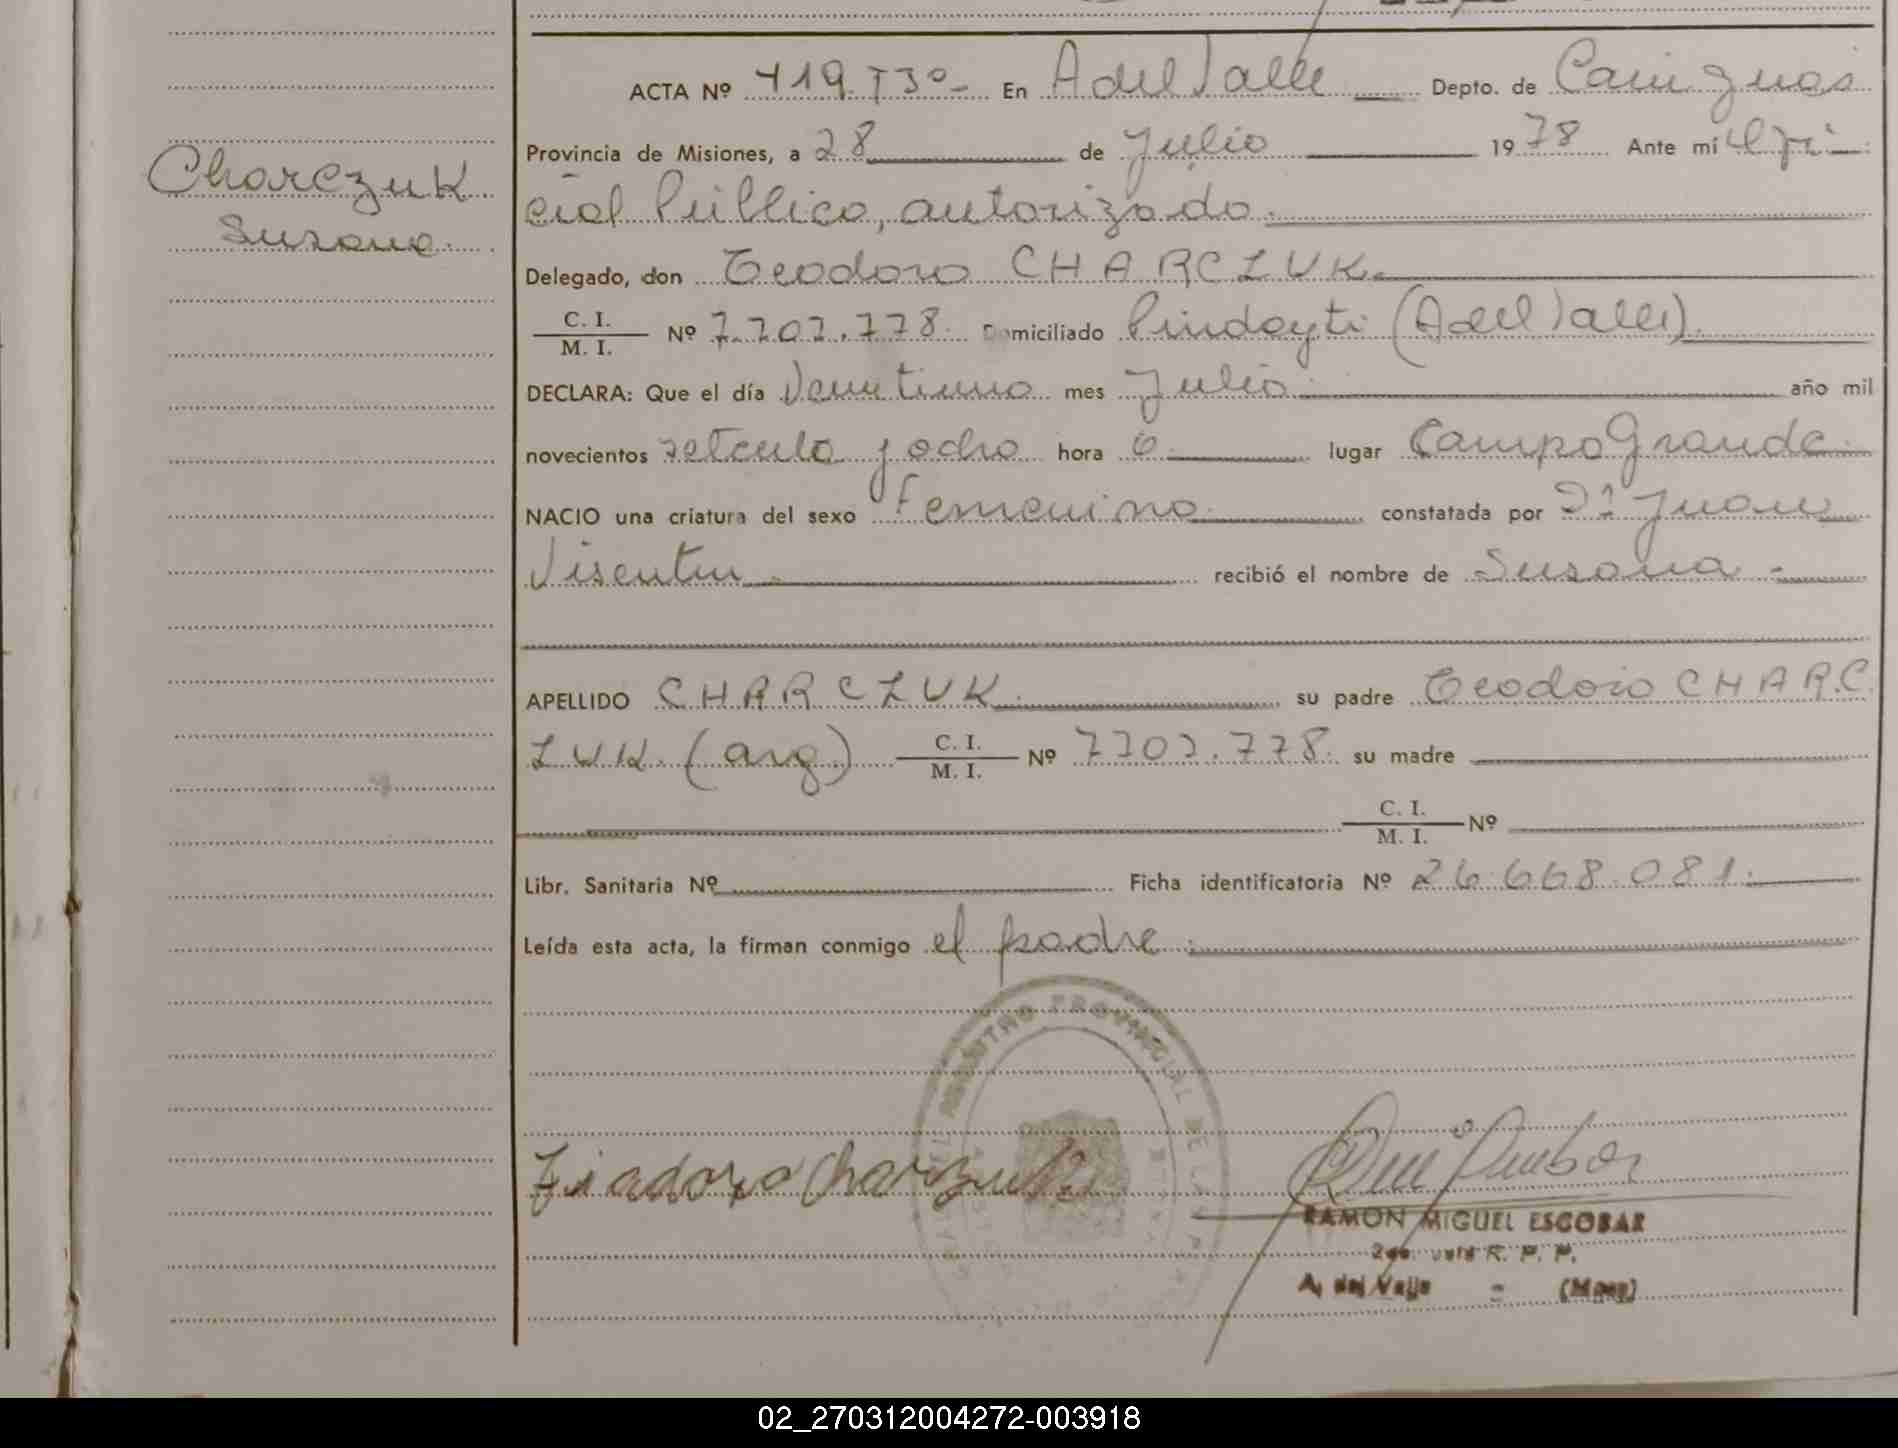 Charczuk
Susana.
ACTA Nº 419. T3º- En A del Valle Depto. de Cainguas
Provincia de Misiones, a 28 de Julio 1978 Ante mi Ofi-
cial Público, autorizado.
Delegado, don Teodoro CHARCZUK.
C. I.
M. I. Nº 7.707.778. Domiciliado Pindayti (A del Valle).
DECLARA: Que el día Veintiuno mes Julio. año mil
novecientos setenta y ocho hora 6. lugar Campo Grande.
NACIO una criatura del sexo Femenino. constatada por Dr Juan
Visentin. recibió el nombre de Susana -
APELLIDO CHARCZUK. su padre Teodoro CHARC
ZUK. (arg) C. I.
M. I. Nº 7707.778. su madre
C. I.
M. I. Nº
Libr. Sanitaria Nº Ficha identificatoria Nº 26.668.081.
Leída esta acta, la firman conmigo el padre.
REGISTRO PROVINCIAL DE LA
RAMON MIGUEL ESCOBAR
R. P. P.
A. del Valle - (Mnes)
02_270312004272-003918